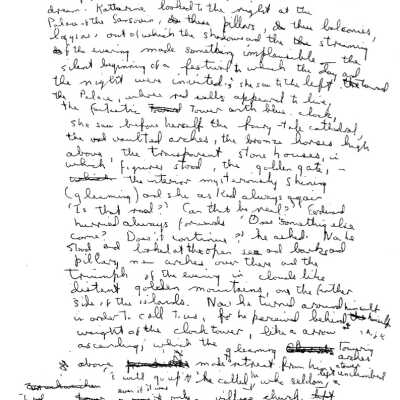 dream. Katharine looked to the right at the
Palace of the Sansovino, these pillars, these balconies,
loggias, out of which the shadow and the streaming
of the evening made something implausible, the
silent beginning of a festival to which the day and
the night were invited; she saw to the left, toward
the Palace, whose red walls appeared to live,
the fantastic Tower with blue clock,
she saw before herself the fairy tale cathedral,
the vaulted arches, the bronze horses high
above the transparent stone houses, in
which figures stood, the golden gate,
the interior mysteriously shining
(gleaming) and she asked always again
"Is that real? Can that be real?"
hurried always forwards "Does something else
come? Does it continue?" he asked. Now he
stood and looked at the open sea and backward
pillars, new arches over there and the
triumph of the evening in clouds like
distant golden mountains, on the further
side of the islands. Now he turned around himself
in order to call to us, for he perceived behind
weight of the clock tower, like a arrow
ascending, which the gleaming Tower
arches
above, made retreat from him,
"I will go up it" he called, who seldom
even if it was
church